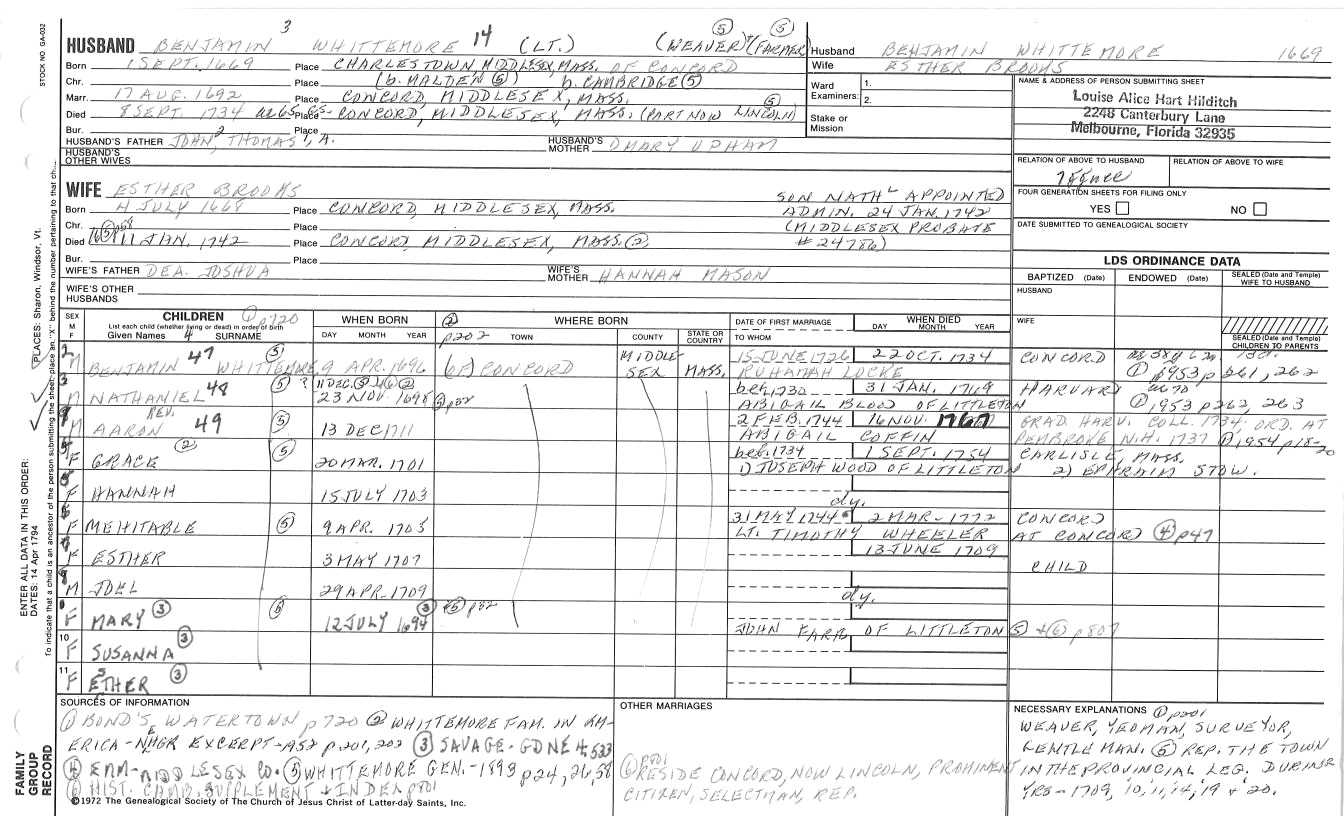 STOCK NO. GA-032
3
HUSBAND BENJAMIN WHITTEMORE 14 (LT.) (WEAVER) (FARMER) ⑤ ⑤
Born 1 SEPT. 1669 Place CHARLESTOWN, MIDDLESEX, MASS. OF CONCORD
Chr. Place (b. MALDEN ⑤) b. CAMBRIDGE ⑤
Marr. 17 AUG. 1692 Place CONCORD, MIDDLESEX, MASS.
Died 8 SEPT. 1734 Place CONCORD, MIDDLESEX, MASS. (PART NOW LINCOLN) ⑤
Bur. Place
HUSBAND'S FATHER JOHN 2, THOMAS 1, A. HUSBAND'S MOTHER MARY UPHAM
HUSBAND'S OTHER WIVES
Husband BENJAMIN WHITTEMORE 1669
Wife ESTHER BROOKS
Ward Examiners: 1. 2.
Stake or Mission
NAME & ADDRESS OF PERSON SUBMITTING SHEET
Louise Alice Hart Hilditch
2248 Canterbury Lane
Melbourne, Florida 32935
RELATION OF ABOVE TO HUSBAND RELATION OF ABOVE TO WIFE
FOUR GENERATION SHEETS FOR FILING ONLY
YES NO
DATE SUBMITTED TO GENEALOGICAL SOCIETY
WIFE ESTHER BROOKS
Born 4 JULY 1668 Place CONCORD, MIDDLESEX, MASS.
Chr. Place
Died 11 JAN. 1742 Place CONCORD, MIDDLESEX, MASS. ②
Bur. Place
WIFE'S FATHER DEA. JOSHUA WIFE'S MOTHER HANNAH MASON
WIFE'S OTHER HUSBANDS
SON NATHL APPOINTED
ADMIN. 24 JAN. 1742
(MIDDLESEX PROBATE
# 24786)
LDS ORDINANCE DATA
BAPTIZED (Date) ENDOWED (Date) SEALED (Date and Temple) WIFE TO HUSBAND
HUSBAND
WIFE
SEALED (Date and Temple) CHILDREN TO PARENTS
SEX M F
CHILDREN ① p720
List each child (whether living or dead) in order of birth
Given Names 4 SURNAME
WHEN BORN DAY MONTH YEAR
② p202 WHERE BORN TOWN COUNTY STATE OR COUNTRY
DATE OF FIRST MARRIAGE TO WHOM
WHEN DIED DAY MONTH YEAR
2 M BENJAMIN 47 WHITTEMORE ⑤ 9 APR. 1696 CONCORD MIDDLESEX MASS. 15 JUNE 1726 22 OCT. 1734 CONCORD
RUHAMAH LOCKE ① 1953 p 261, 262
3 M NATHANIEL 48 ⑤ ? 11 DEC. 23 NOV. 1698 ⑤ p32 bef. 1730 31 JAN. 1769 HARVARD
ABIGAIL BLOOD OF LITTLETON ① 1953 p262, 263
M REV. AARON 49 ⑤ 13 DEC 1711 2 FEB. 1744 16 NOV. 1767 GRAD. HARV. COLL. 1734. ORD. AT
ABIGAIL COFFIN PEMBROKE N.H. 1737 ① 1954 p18-20
F GRACE ② ⑤ 20 MAR. 1701 bef. 1734 1 SEPT. 1754 CARLISLE, MASS.
1) JOSEPH WOOD OF LITTLETON 2) EPHRAIM STOW.
F HANNAH 15 JULY 1703
dy.
6 F MEHITABLE ⑤ 9 APR. 1705 31 MAY 1744 2 MAR - 1772 CONCORD
LT. TIMOTHY WHEELER AT CONCORD ④ p47
F ESTHER 3 MAY 1707 13 JUNE 1709
CHILD
M JOEL 29 APR. 1709
dy.
F MARY ③ ⑤ 12 JULY 1694 ③ ⑤ p32
JOHN FARR OF LITTLETON ⑤ + ⑥ p807
10 F SUSANNA ③
11 F ESTHER ③
SOURCES OF INFORMATION
① BOND'S WATERTOWN p720 ② WHITTEMORE FAM. IN AM-
ERICA - NHGR EXCERPT - A52 p.201, 202 ③ SAVAGE - GDNE 4:533
④ ERM - MIDDLESEX CO. ⑤ WHITTEMORE GEN. - 1893 p24, 26, 38
⑥ HIST. CAMB. SUPPLEMENT + INDEX p801
©1972 The Genealogical Society of The Church of Jesus Christ of Latter-day Saints, Inc.
OTHER MARRIAGES
⑥ p801
RESIDE CONCORD, NOW LINCOLN, PROMINENT
CITIZEN, SELECTMAN, REP.
NECESSARY EXPLANATIONS ① p201
WEAVER, YEOMAN, SURVEYOR,
GENTLEMAN. ⑤ REP. THE TOWN
IN THE PROVINCIAL LEG. DURING
YRS - 1709, '10, '11, '14, '19 + '20.
FAMILY GROUP RECORD
ENTER ALL DATA IN THIS ORDER:
DATES: 14 Apr 1794 PLACES: Sharon, Windsor, Vt.
To indicate that a child is an ancestor of the person submitting the sheet, place an "X" behind the number pertaining to that